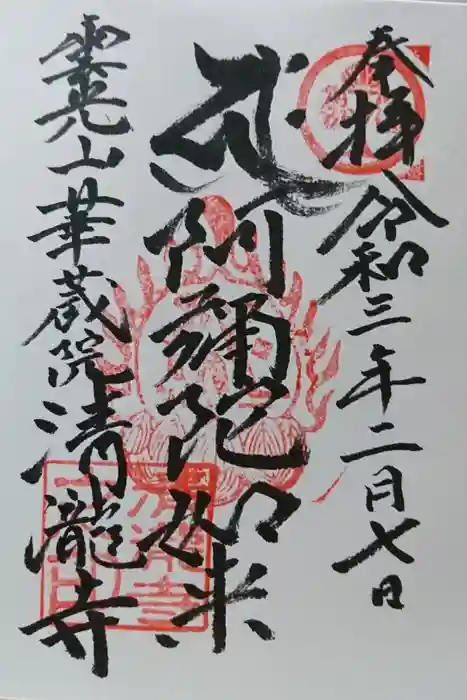 奉拝 令和三年二月七日
阿彌陀如来
霊光山華蔵院清瀧寺
清瀧寺